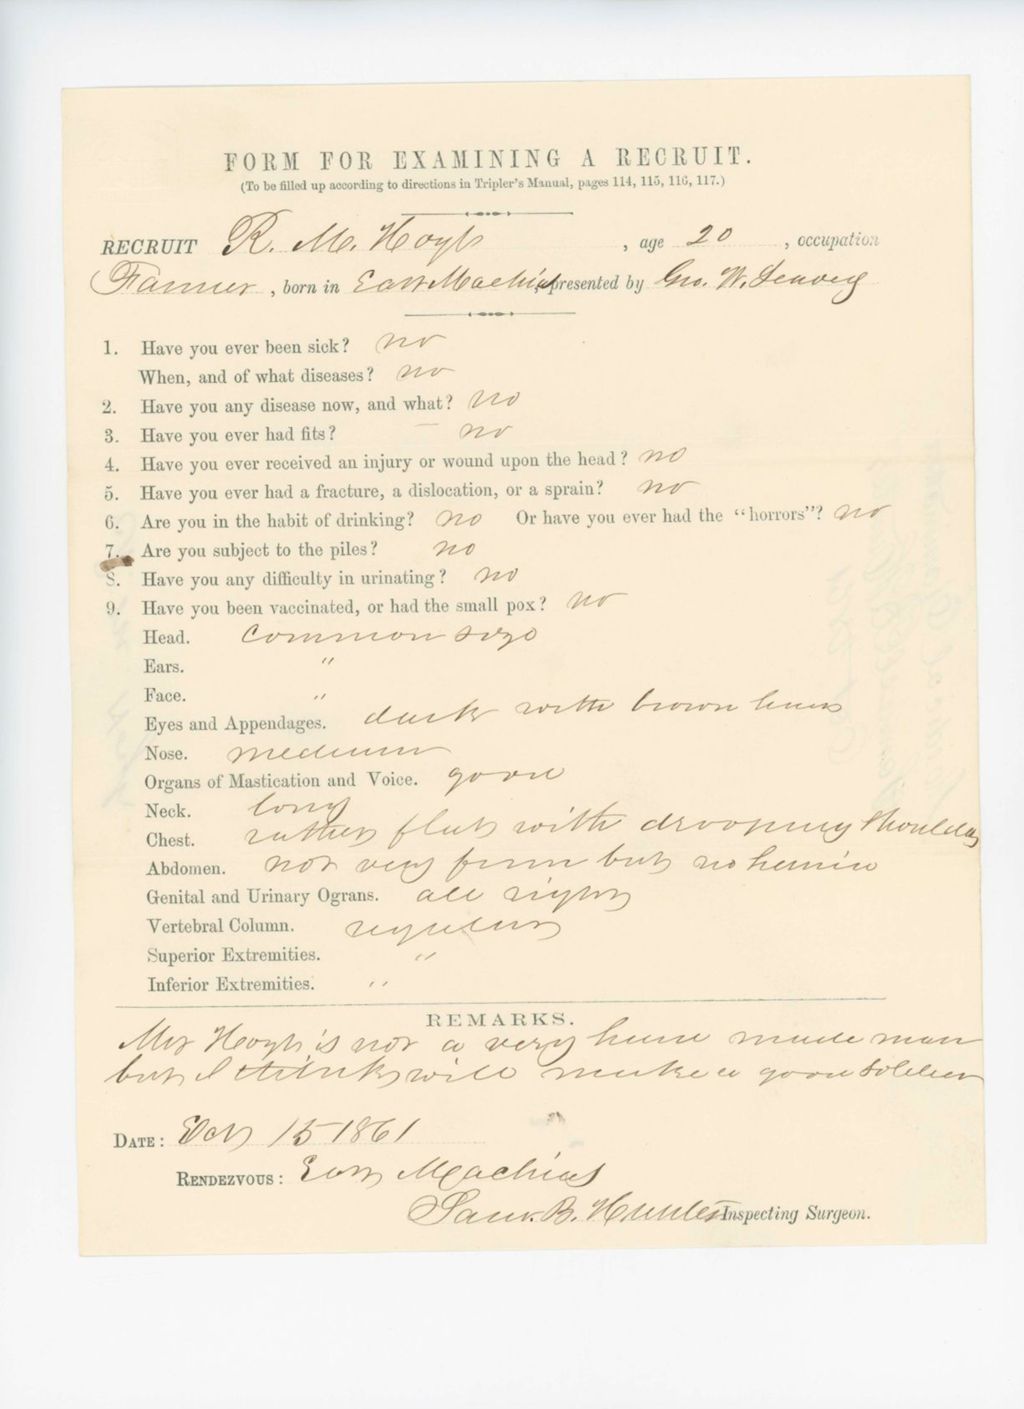 FORM FOR EXAMINING A RECRUIT.
(To be filled up according to directions in Tripler's Manual, pages 114, 115, 116, 117.)
RECRUIT R. M. Hoyt, age 20, occupation
Farmer, born in East Machias, presented by Geo. W.
1. Have you ever been sick? no
When, and of what diseases? no
2. Have you any disease now, and what? no
3. Have you ever had fits? no
4. Have you ever received an injury or wound upon the head? no
5. Have you ever had a fracture, a dislocation, or a sprain? no
6. Are you in the habit of drinking? no Or have you ever had the "horrors"? no
7. Are you subject to the piles? no
8. Have you any difficulty in urinating? no
9. Have you been vaccinated, or had the small pox? no
Head. Common size
Ears. "
Face. "
Eyes and Appendages. dark with brown hair
Nose. medium
Organs of Mastication and Voice. good
Neck. long
Chest. rather flat with drooping shoulders
Abdomen. not very firm but no hernia
Genital and Urinary Ograns. all right
Vertebral Column. regular
Superior Extremities. "
Inferior Extremities. "
REMARKS.
Mr Hoyt is not a very made man
but I think will make a good soldier
DATE: Oct 15 1861
RENDEZVOUS: East Machias
Sam. B. Hunter Inspecting Surgeon.